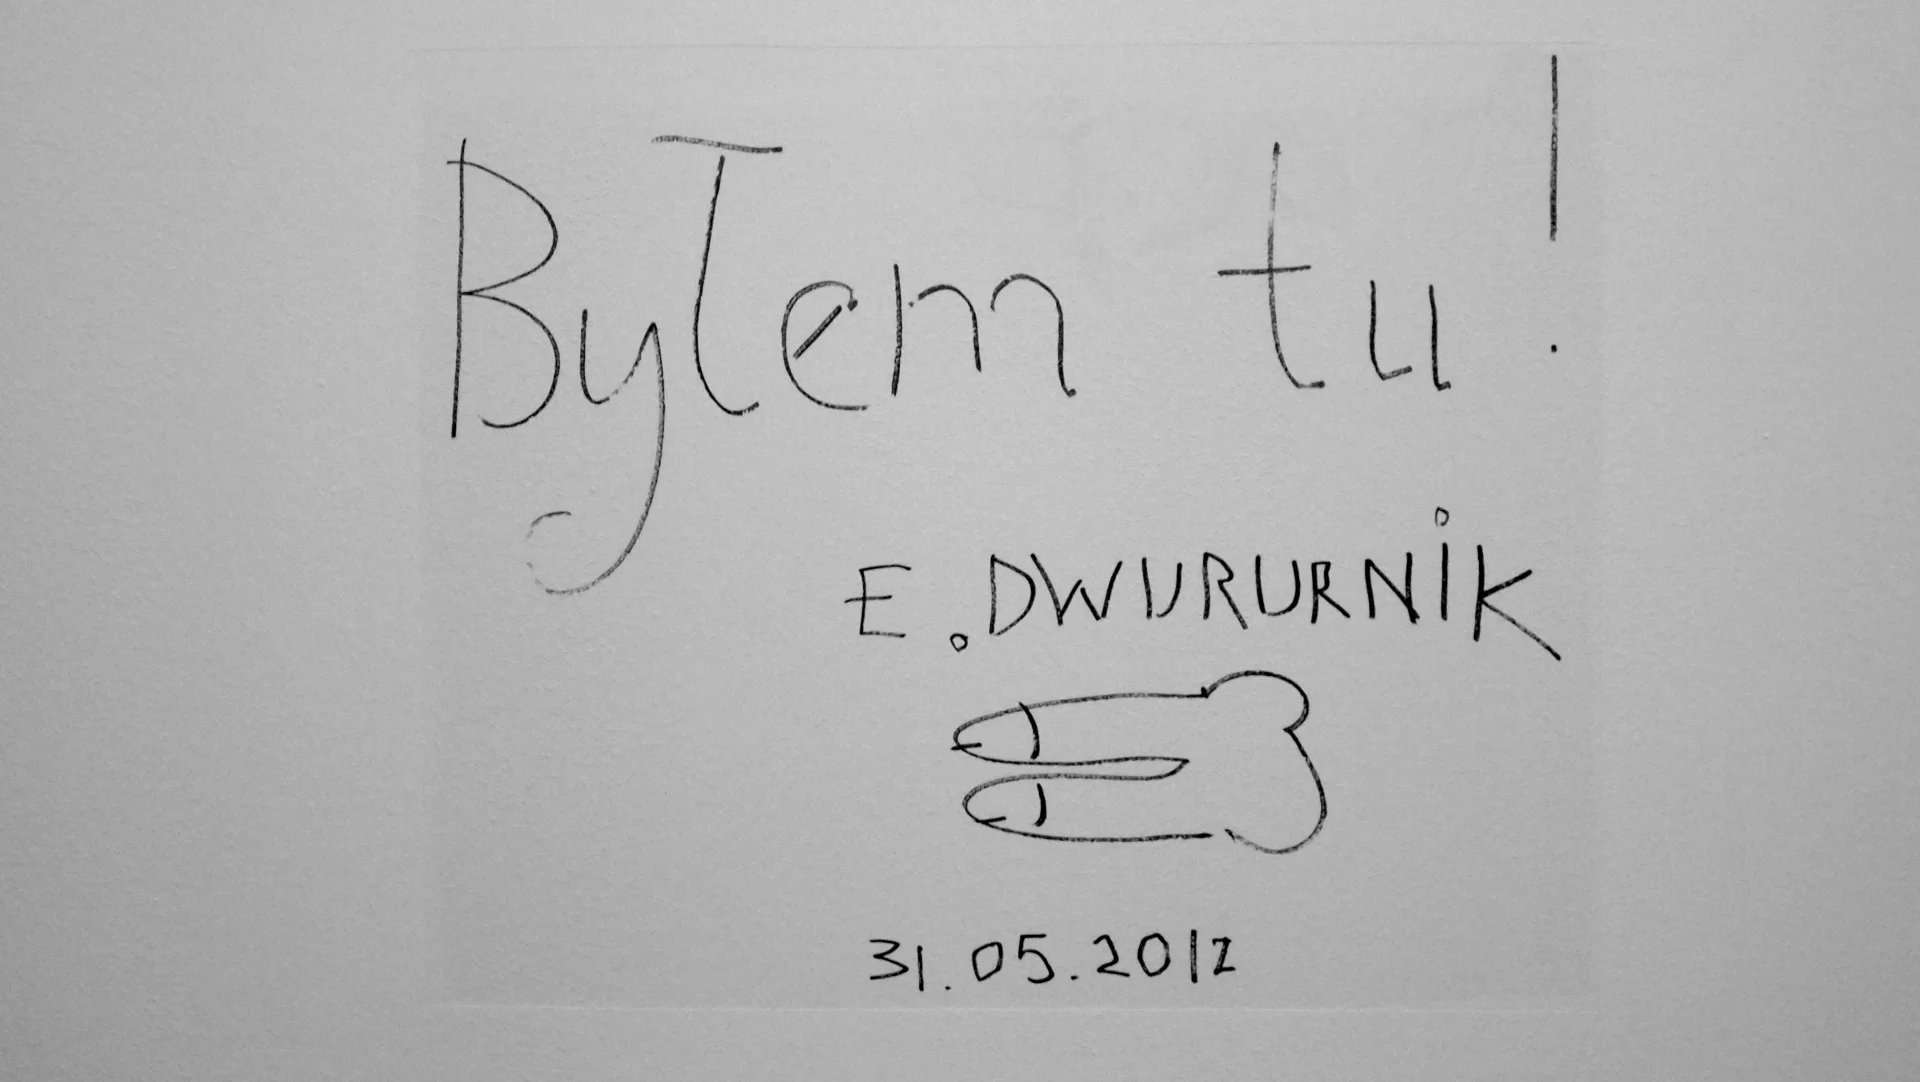 Byłem tu!
E. DWURURNIK
31.05.2012